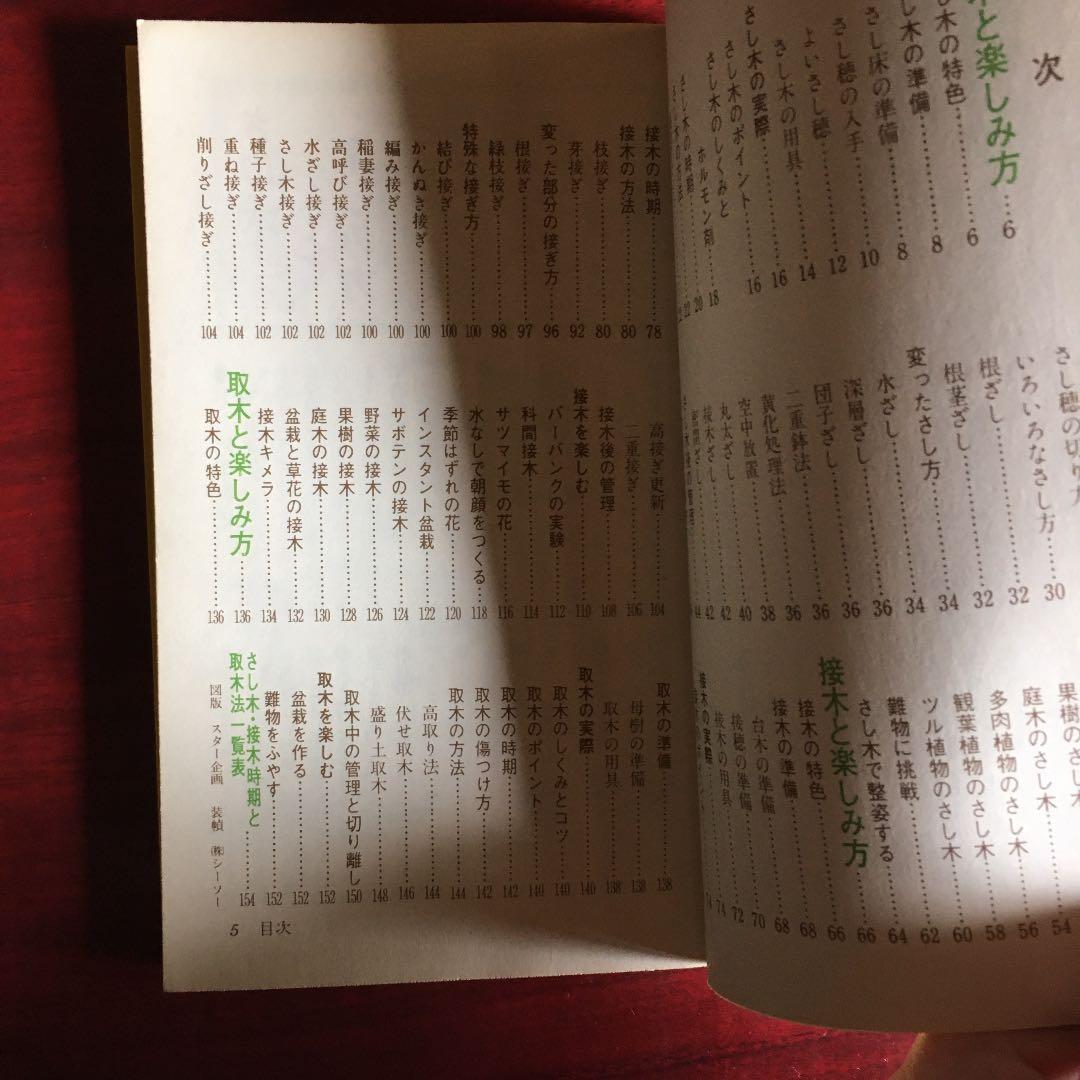 次
木と楽しみ方……6
し木の特色……6
し木の準備……8
さし床の準備……8
さし穂の入手……10
よいさし穂……12
さし木の用具……14
さし木の実際……16
さし木のポイント……16
さし木のしくみと
ホルモン剤……18
さし木の時期……20
さし穂の切り方……30
いろいろなさし方……32
根ざし……32
根茎ざし……34
変ったさし方……34
水ざし……36
深層ざし……36
団子ざし……36
二重鉢法……36
黄化処理法……38
空中放置……40
丸太ざし……42
接木ざし……42
密閉ざし……44
果樹のさし木……54
庭木のさし木……56
多肉植物のさし木……58
観葉植物のさし木……60
ツル植物のさし木……62
難物に挑戦……64
さし木で整姿する……66
接木と楽しみ方……66
接木の特色……68
接木の準備……68
台木の準備……70
接穂の準備……72
接木の用具……74
接木の実際……74
接木の時期……78
接木の方法……80
枝接ぎ……80
芽接ぎ……92
変った部分の接ぎ方……96
根接ぎ……97
緑枝接ぎ……98
特殊な接ぎ方……100
結び接ぎ……100
かんぬき接ぎ……100
編み接ぎ……100
稲妻接ぎ……100
高呼び接ぎ……102
水ざし接ぎ……102
さし木接ぎ……102
種子接ぎ……102
重ね接ぎ……104
削りざし接ぎ……104
高接ぎ更新……104
二重接ぎ……106
接木後の管理……108
接木を楽しむ……110
バーバンクの実験……112
科間接木……114
サツマイモの花……116
水なしで朝顔をつくる……118
季節はずれの花……120
インスタント盆栽……122
サボテンの接木……124
野菜の接木……126
果樹の接木……128
庭木の接木……130
盆栽と草花の接木……132
接木キメラ……134
取木と楽しみ方……136
取木の特色……136
取木の準備……138
母樹の準備……138
取木の用具……138
取木の実際……140
取木のしくみとコツ……140
取木のポイント……140
取木の時期……142
取木の傷つけ方……142
取木の方法……144
高取り法……144
伏せ取木……146
盛り土取木……148
取木中の管理と切り離し……150
取木を楽しむ……152
盆栽を作る……152
難物をふやす……152
さし木・接木時期と
取木法一覧表……154
図版 スター企画 装幀 ㈱シーソー
5 目次